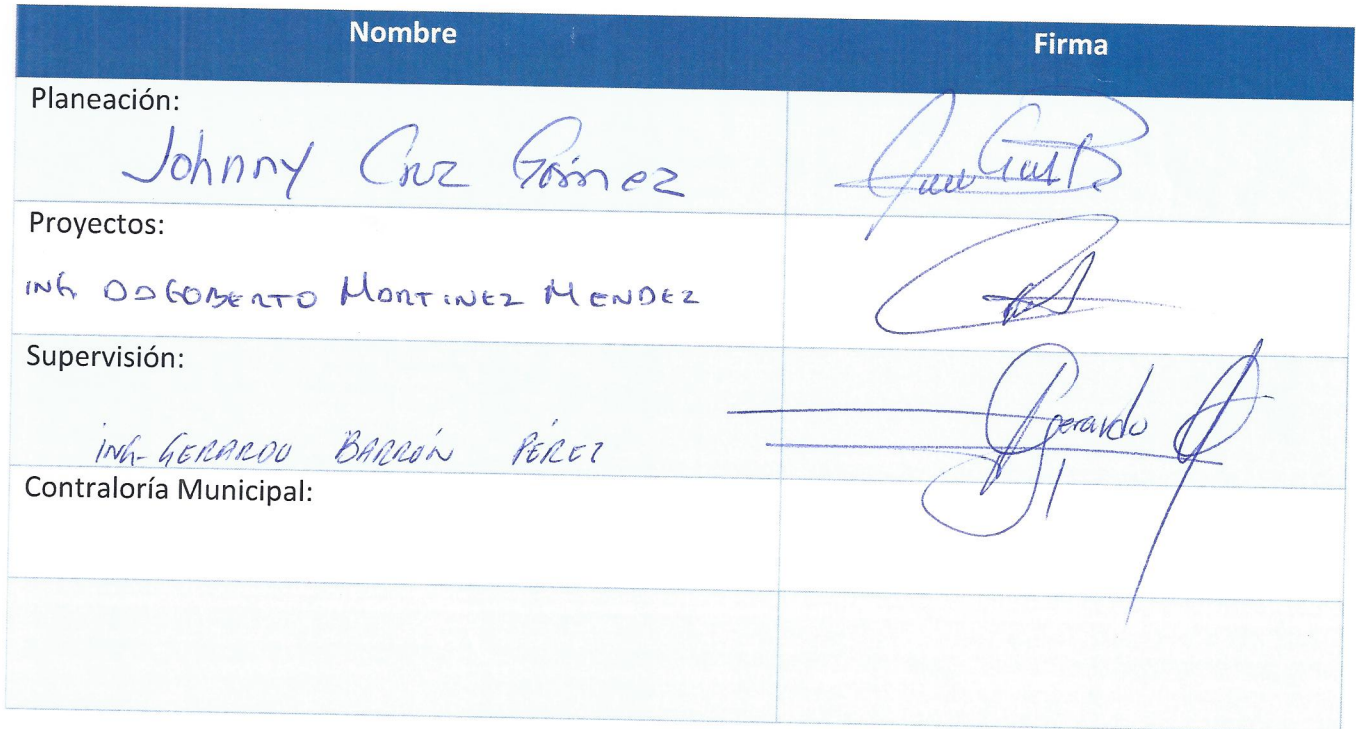 Nombre
Firma
Planeación:
Johnny Cruz Gómez
Proyectos:
ING. MARTINEZ MENDEZ
Supervisión:
ING. GERARDO BARRÓN PÉREZ
Gerardo
Contraloría Municipal: